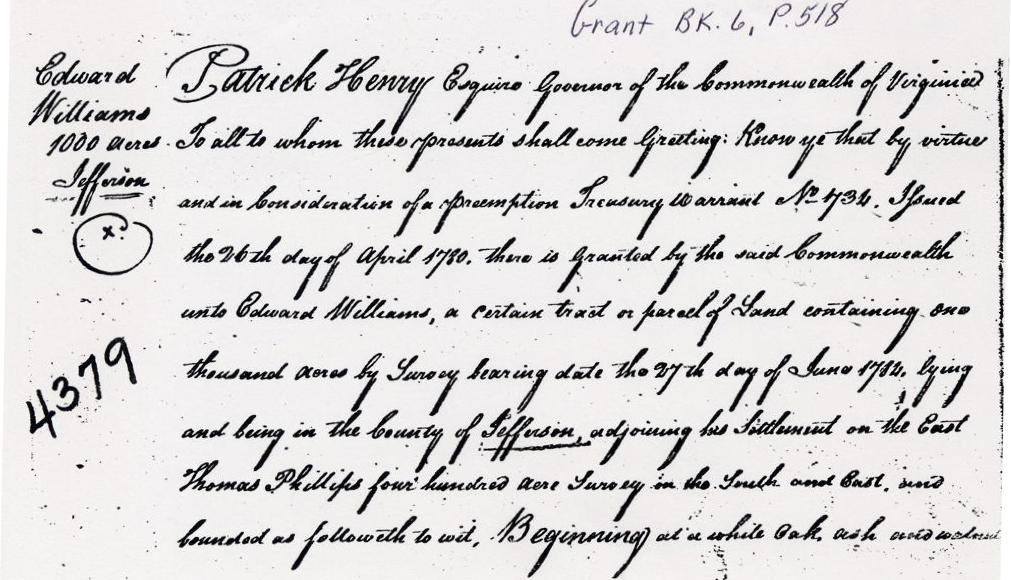 Grant BK. 6, P. 518
Edward
Williams
1000 acres.
Jefferson
x?
4379
Patrick Henry Esquire Governor of the Commonwealth of Virginia
To all to whom these presents shall come Greeting: Know ye that by virtue
and in Consideration of a preemption Treasury Warrant No 1734. Issued
the 26th day of April 1780. there is Granted by the said Commonwealth
unto Edward Williams, a certain tract or parcel of Land containing one
thousand acres by Survey bearing date the 27th day of June 1784. lying
and being in the County of Jefferson, adjoining his Settlement on the East
Thomas Phillips four hundred acre Survey in the South and East. and
bounded as followeth to wit, Beginning at a white Oak, ash and walnut